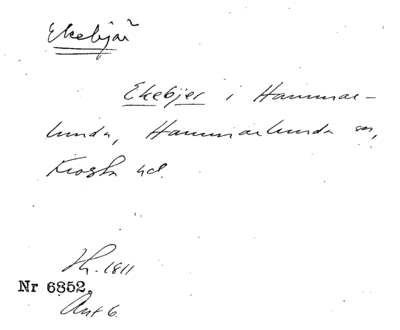 Ekebjär
Ekebjer i Hammar-
lunda, Hammarlunda sn,
Frosta hd.
Sk. 1811
Nr 6852.
Akt 6.